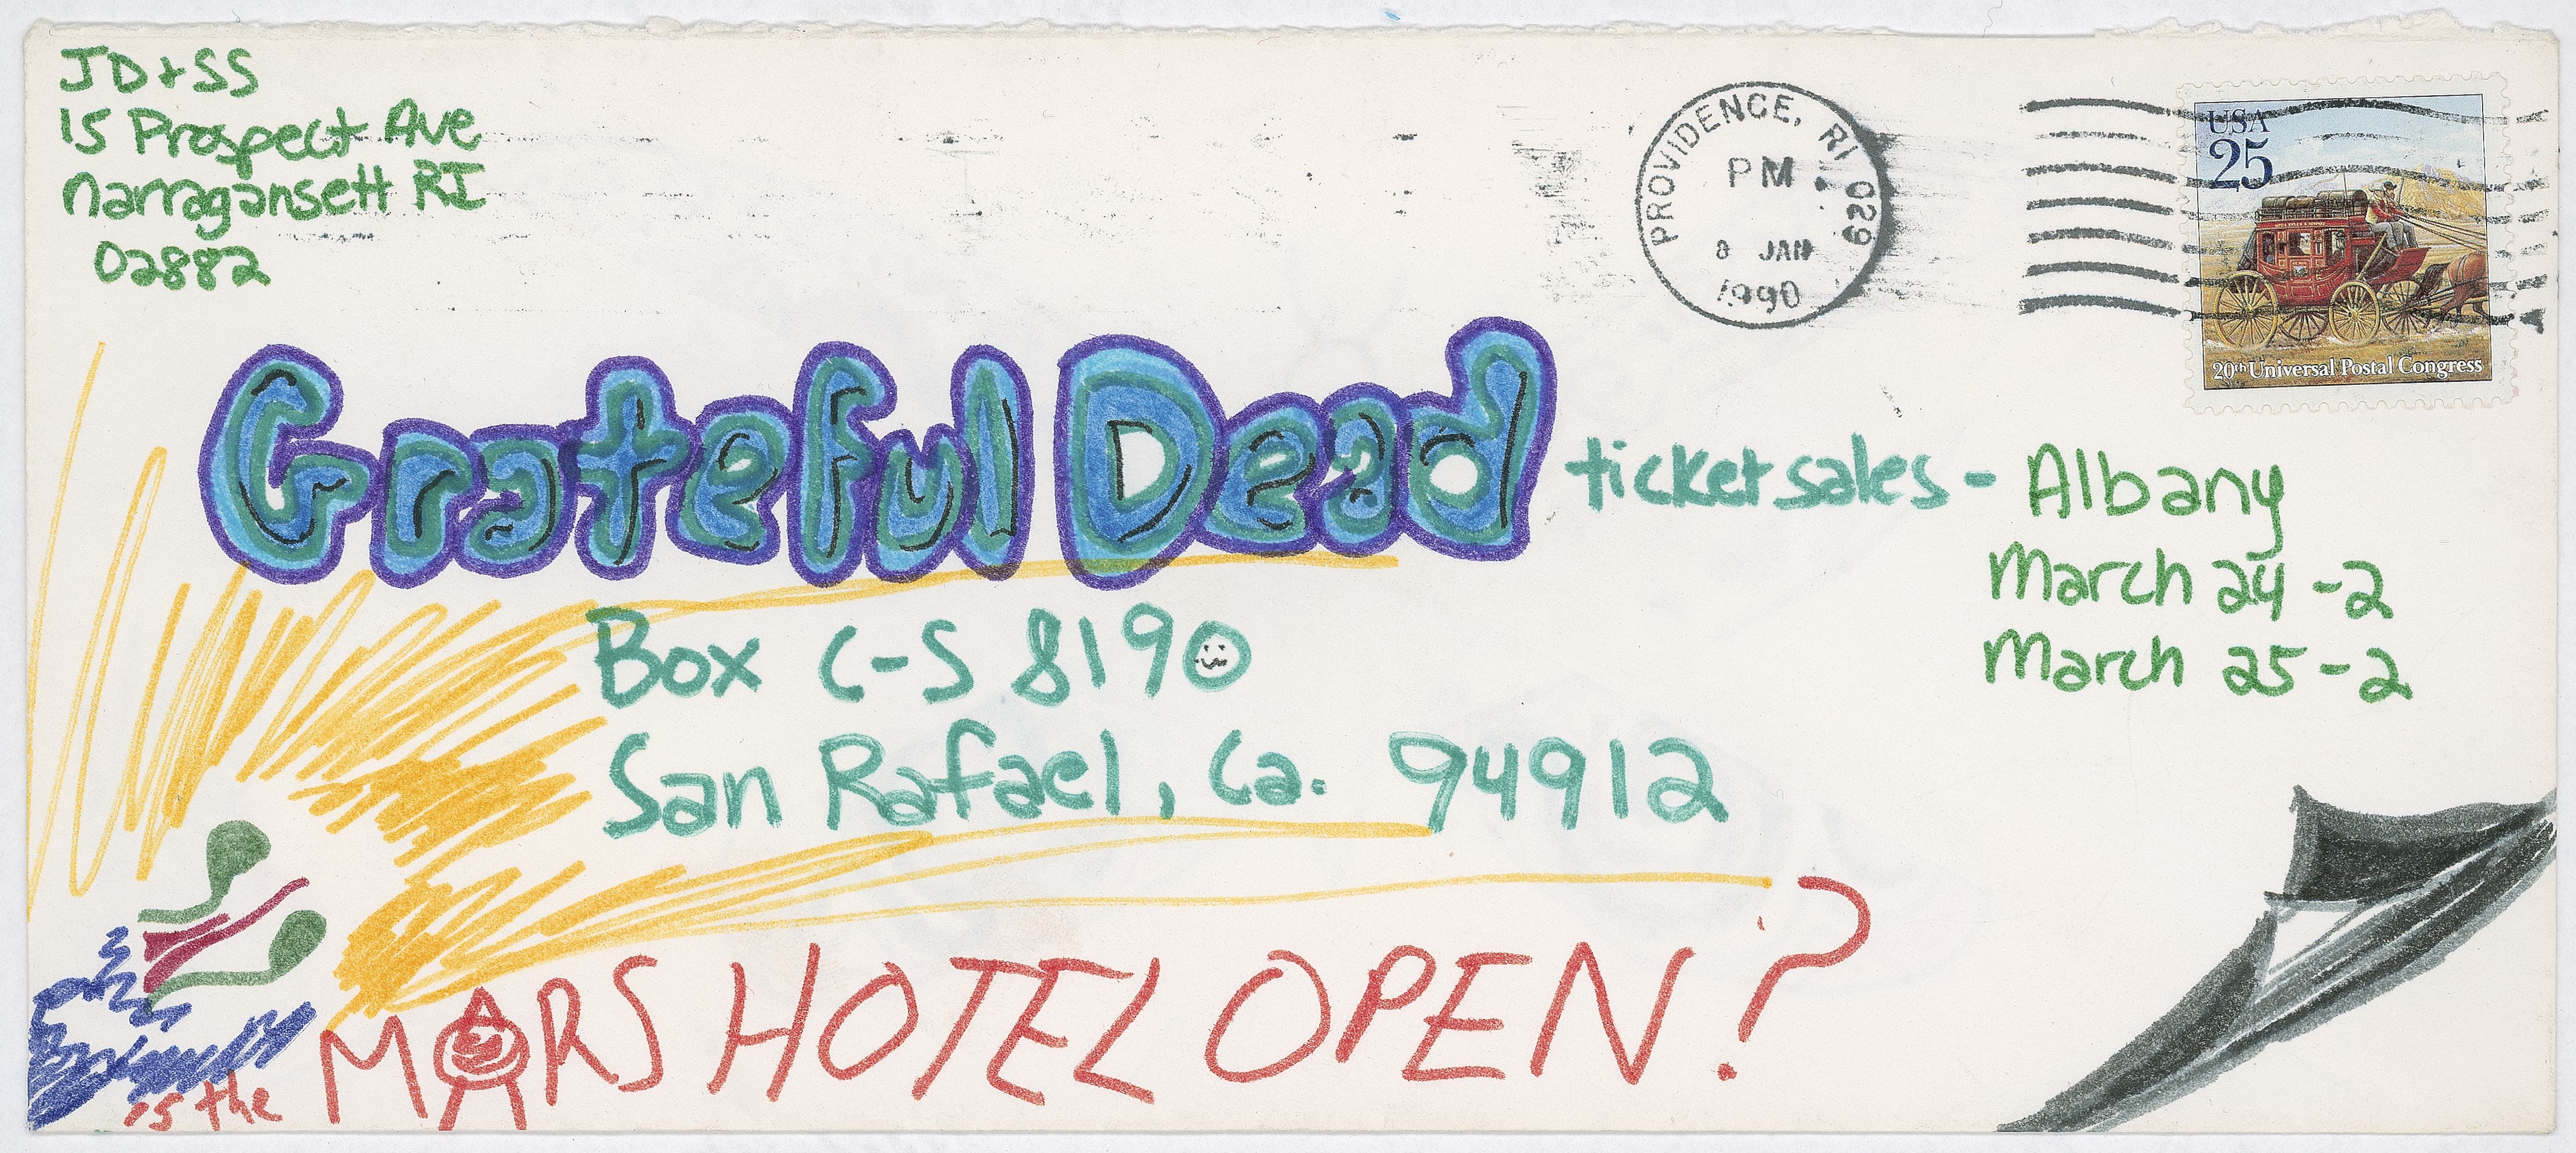 JD+SS
15 Prospect Ave
Narragansett RI
02882
PROVIDENCE, RI 029
PM
8 JAN
1990
USA
25
20th Universal Postal Congress
Grateful Dead ticket sales - Albany
March 24 - 2
March 25 - 2
Box C-S 8190
San Rafael, Ca. 94912
is the MARS HOTEL OPEN?